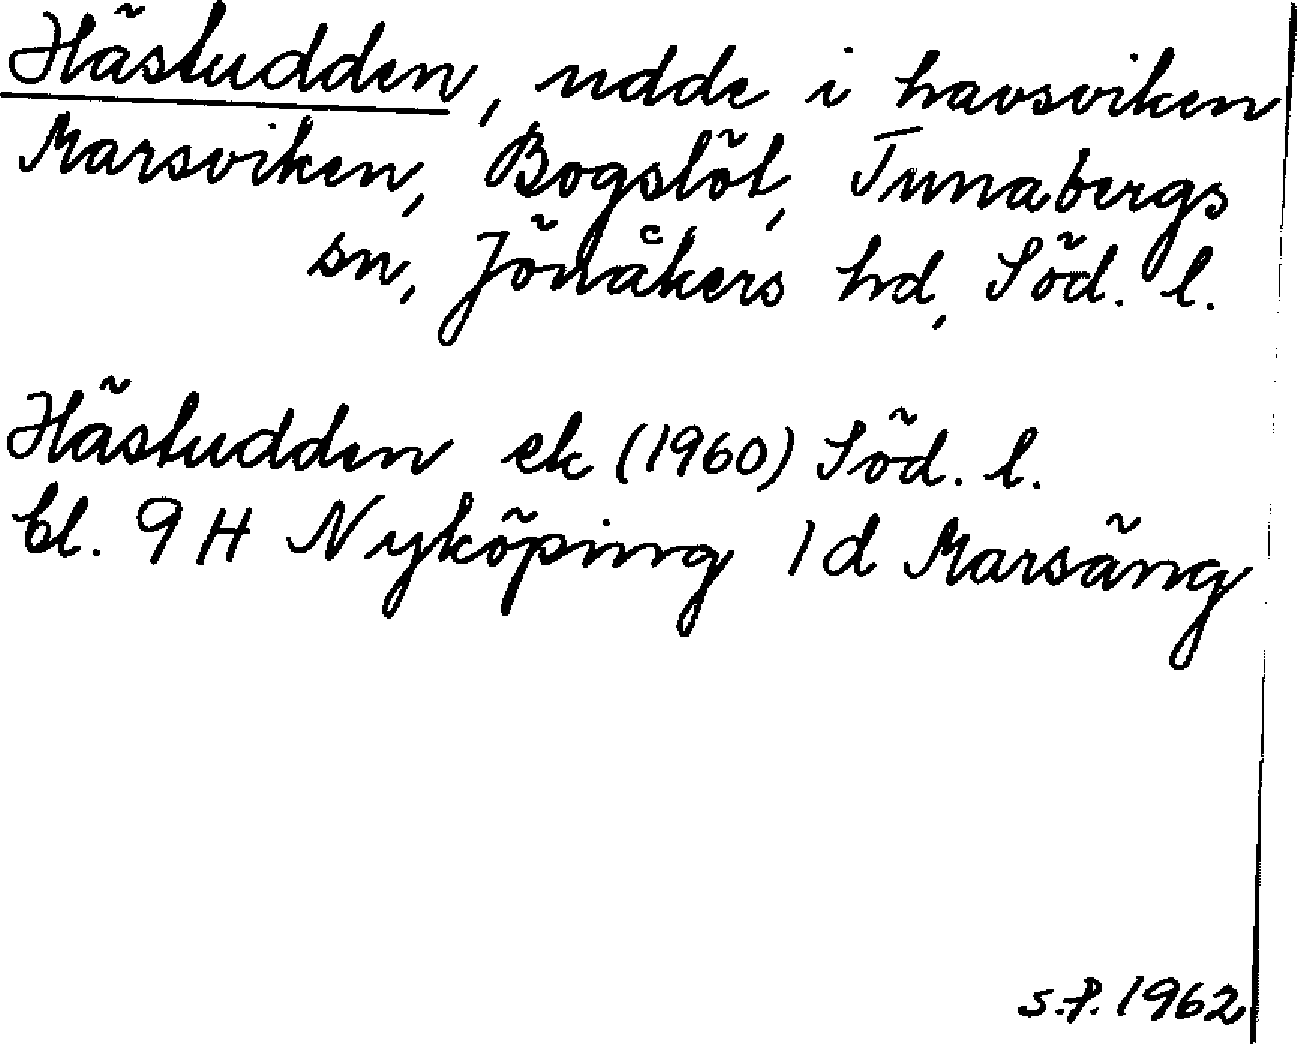 Hästudden, udde i havsviken
Marsviken, Bogslöt, Tunabergs
sn, Jönåkers hd, Söd. l.
Hästudden ek (1960) Söd. l.
bl. 9 H Nyköping 1 d Marsäng
S.P. 1962